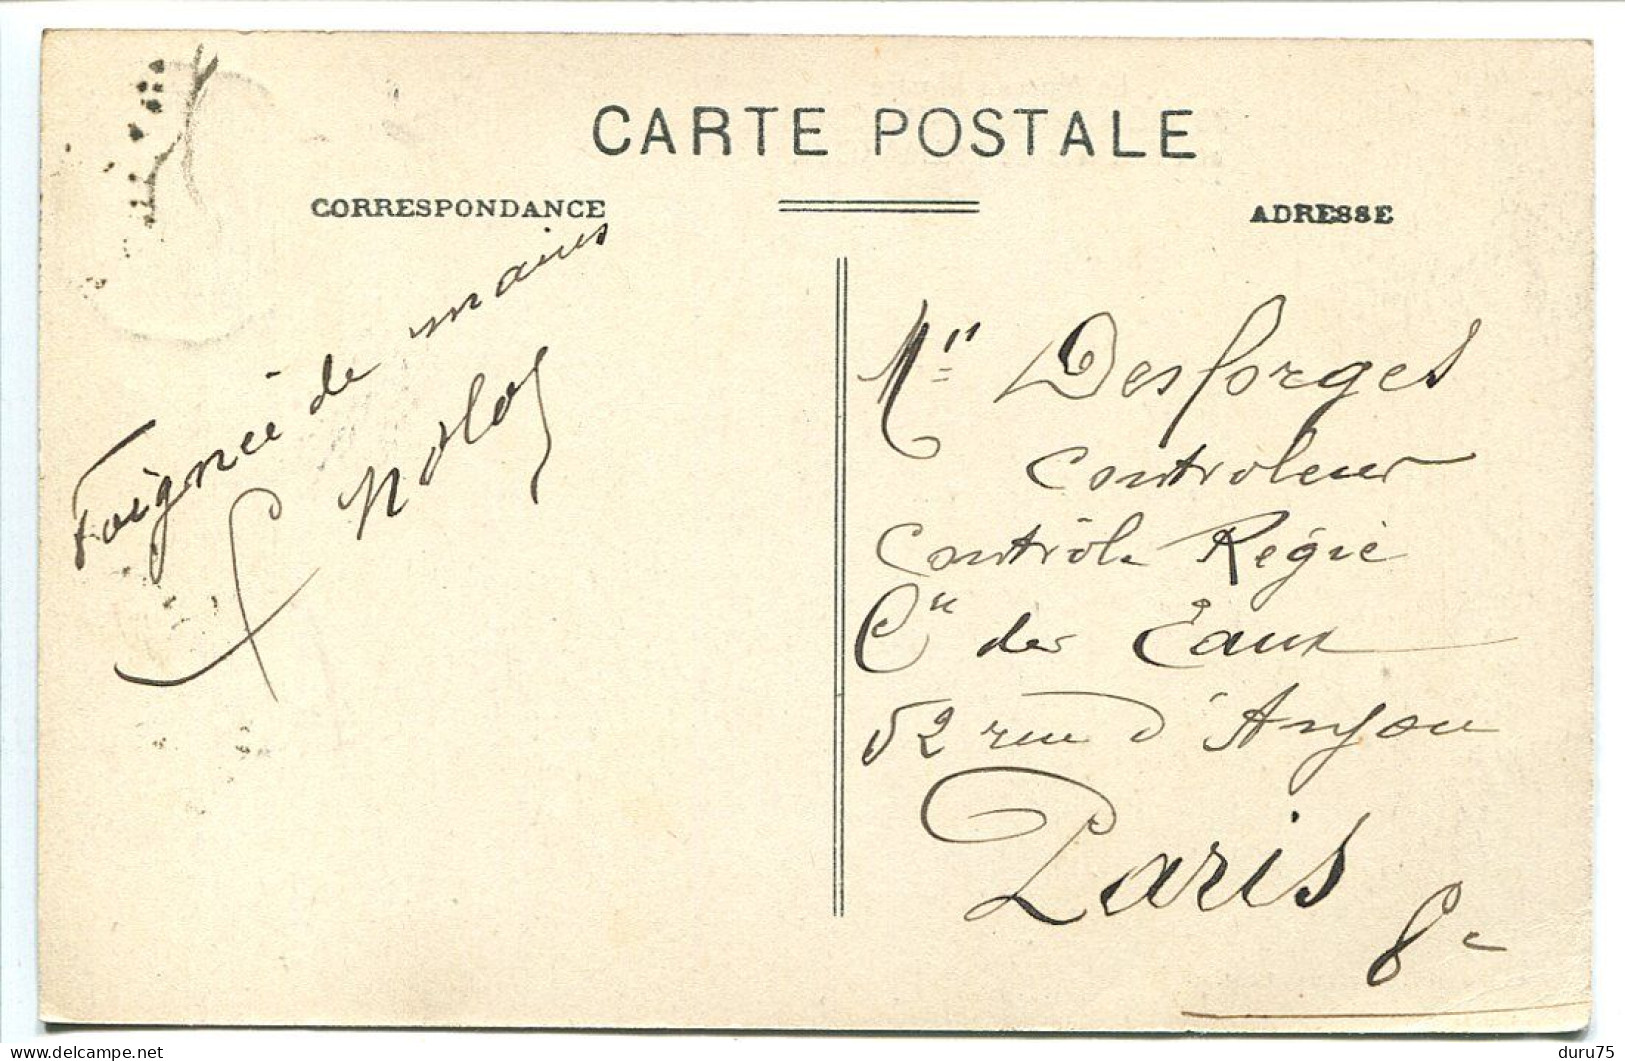 CARTE POSTALE
CORRESPONDANCE
ADRESSE
Poignée de mains
Mr Desforges
Controleur
Contrôle Régie
Cie des Eaux
52 rue d'Anjou
Paris
8e
delcampe.net
duru75